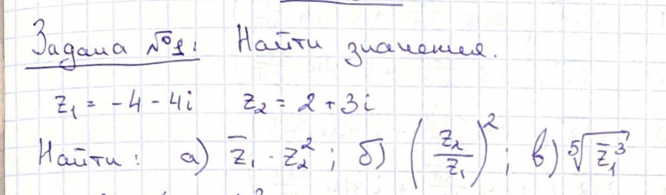 Задача №1: Найти значения.
z₁ = -4 - 4i z₂ = 2 + 3i
Найти: а) z̅₁ · z₂²; б) (z₂/z₁)²; в) ⁵√(z̅₁³)